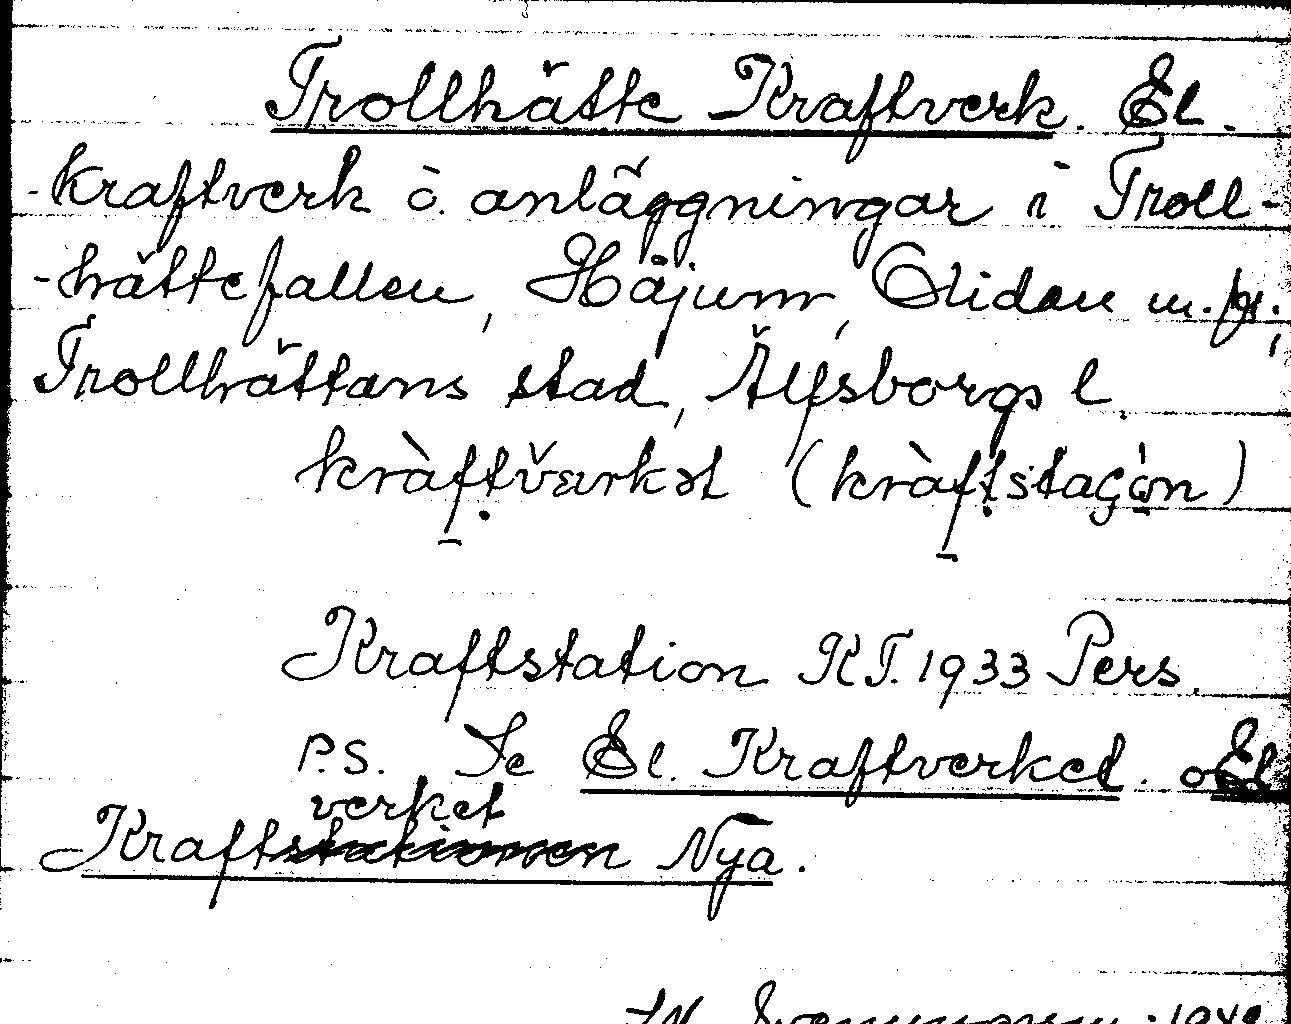 Trollhätte Kraftverk. El.
-kraftverk o. anläggningar i Troll-
-hättefallen, Håjum, Olidan m. fl.;
Trollhättans stad, Älfsborgs l.
kràftvärkət (kràftstaçón)
Kraftstation KT. 1933 Pers.
P.S. Se El. Kraftverket. o El
verket
Kraftstationen Nya.